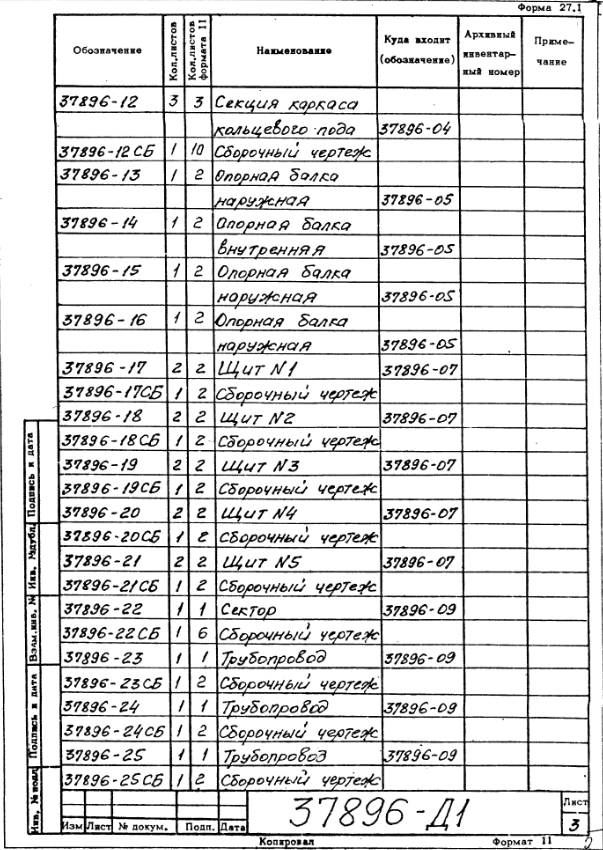 Форма 27.1
Обозначение Кол.листов Кол.листов формата 11 Наименование Куда входит (обозначение) Архивный инвентар- ный номер Приме- чание
37896-12 3 3 Секция каркаса
кольцевого пода 37896-04
37896-12 СБ 1 10 Сборочный чертеж
37896-13 1 2 Опорная балка
наружная 37896-05
37896-14 1 2 Опорная балка
внутренняя 37896-05
37896-15 1 2 Опорная балка
наружная 37896-05
37896-16 1 2 Опорная балка
наружная 37896-05
37896-17 2 2 Щит N1 37896-07
37896-17СБ 1 2 Сборочный чертеж
37896-18 2 2 Щит N2 37896-07
37896-18СБ 1 2 Сборочный чертеж
37896-19 2 2 Щит N3 37896-07
37896-19СБ 1 2 Сборочный чертеж
37896-20 2 2 Щит N4 37896-07
37896-20СБ 1 2 Сборочный чертеж
37896-21 2 2 Щит N5 37896-07
37896-21СБ 1 2 Сборочный чертеж
37896-22 1 1 Сектор 37896-09
37896-22СБ 1 6 Сборочный чертеж
37896-23 1 1 Трубопровод 37896-09
37896-23СБ 1 2 Сборочный чертеж
37896-24 1 1 Трубопровод 37896-09
37896-24СБ 1 2 Сборочный чертеж
37896-25 1 1 Трубопровод 37896-09
37896-25СБ 1 2 Сборочный чертеж
Подпись и дата
Инв. №дубл.
Взам.инв. №
Подпись и дата
Инв. №подл
Изм Лист № докум. Подп. Дата
37896-Д1
Лист
3
Копировал Формат 11